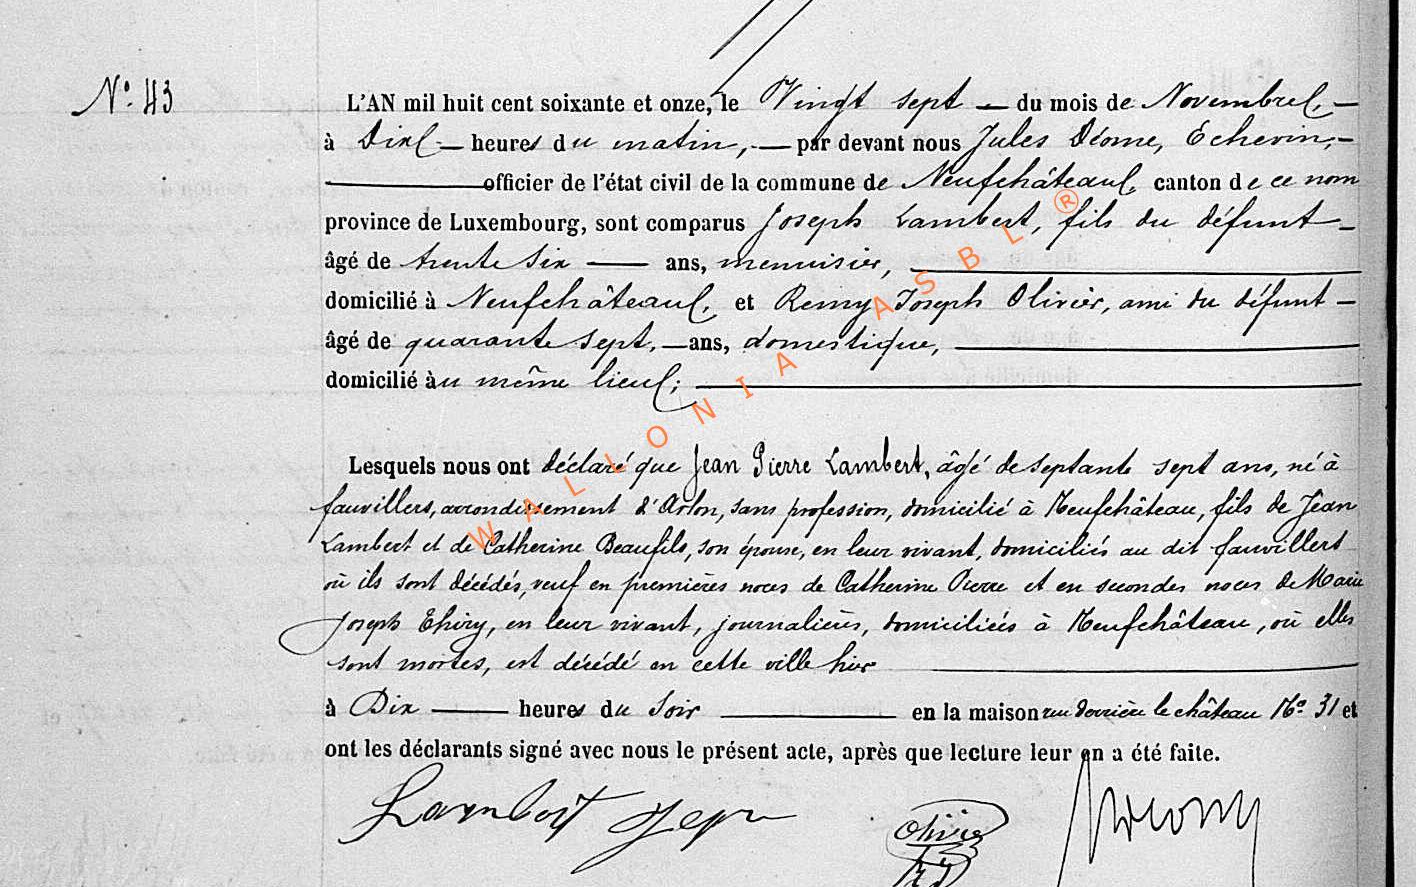 N° 43
L'AN mil huit cent soixante et onze, le Vingt sept — du mois de Novembre, —
à Dix — heures du matin, — par devant nous Jules Déome, Echevin, —
— officier de l'état civil de la commune de Neufchâteau, canton de ce nom
province de Luxembourg, sont comparus Joseph Lambert, fils du défunt —
âgé de trente six — ans, menuisier, —
domicilié à Neufchâteau, et Remy Joseph Olivier, ami du défunt —
âgé de quarante sept, — ans, domestique, —
domicilié au même lieu; —
Lesquels nous ont déclaré que Jean Pierre Lambert, âgé de septante sept ans, né à
fauvillers, arrondissement d'Arlon, sans profession, domicilié à Neufchâteau, fils de Jean
Lambert et de Catherine Beaufils, son épouse, en leur vivant, domiciliés au dit fauvillers
où ils sont décédés, veuf en premières noces de Catherine Pierre et en secondes noces de Marie
Joseph Thiry, en leur vivant, journalières, domiciliées à Neufchâteau, où elles
sont mortes, est décédé en cette ville hier —
à Dix — heures du Soir — en la maison rue derrière le château N° 31 et
ont les déclarants signé avec nous le présent acte, après que lecture leur en a été faite.
Lambert Jeph
Olivier
RJ
Déome
WALLONIA ASBL ®